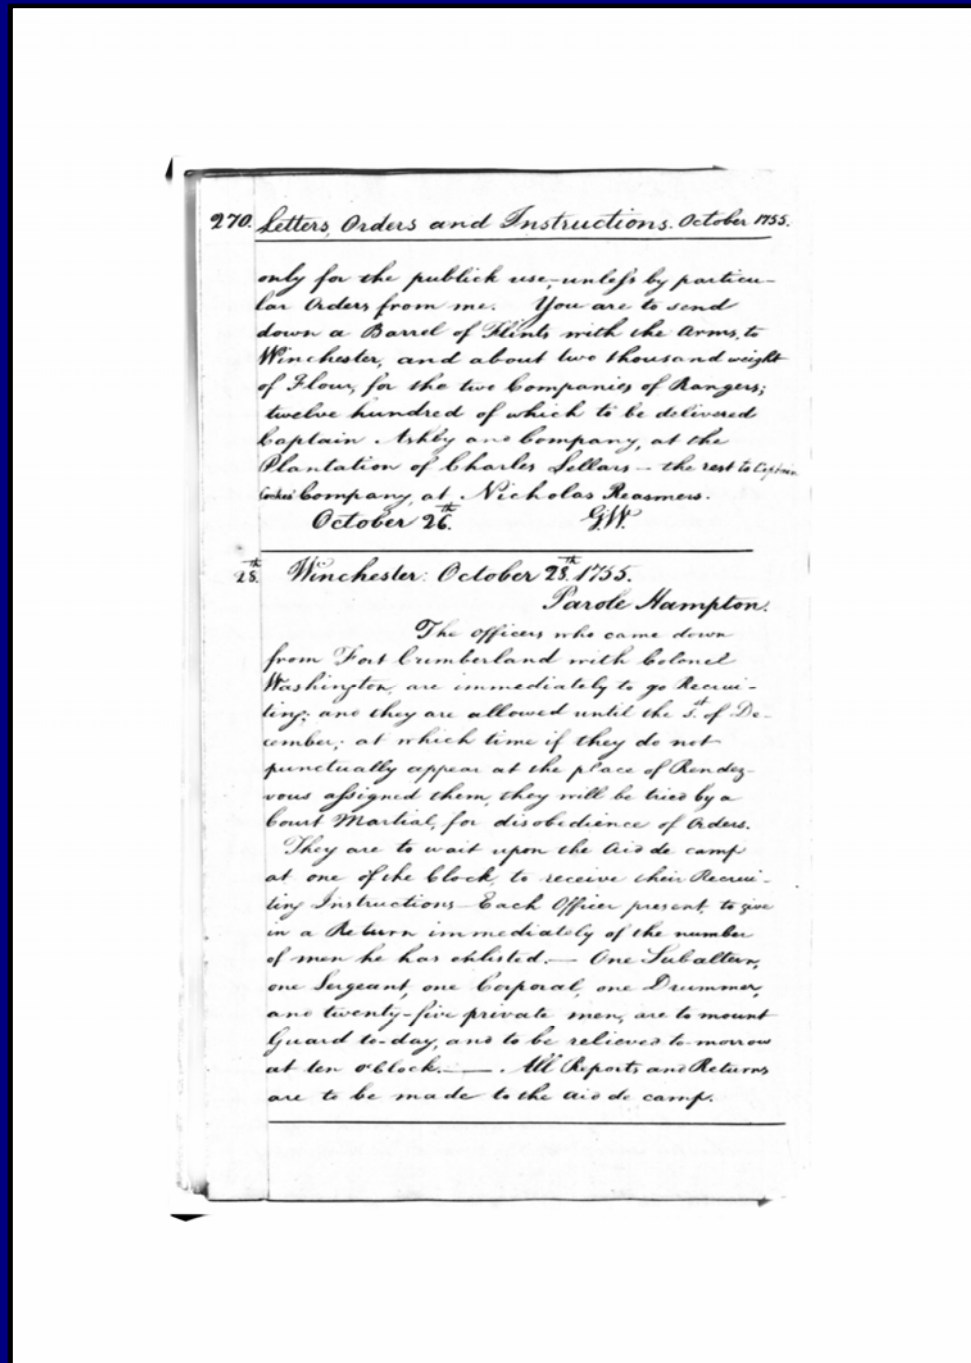 270. Letters, Orders and Instructions. October 1755.
only for the publick use, unless by particu-
lar Orders from me. You are to send
down a Barrel of Flints with the Arms, to
Winchester, and about two thousand weight
of Flour, for the two Companies of Rangers;
twelve hundred of which to be delivered
Captain Ashby and Company, at the
Plantation of Charles Sellars - the rest to Captain
Cockes Company, at Nicholas Reasmers.
October 26.th G.W.
28.th Winchester: October 28.th 1755.
Parole Hampton.
The Officers who came down
from Fort Cumberland with Colonel
Washington, are immediately to go Recrui-
ting; and they are allowed until the 1.st of De-
cember; at which time if they do not
punctually appear at the place of Rendez-
vous assigned them, they will be tried by a
Court Martial, for disobedience of Orders.
They are to wait upon the Aid de camp
at one of the Clock, to receive their Recrui-
ting Instructions - Each Officer present, to give
in a Return immediately of the number
of men he has enlisted. — One Subaltern,
one Sergeant, one Corporal, one Drummer,
and twenty-five private men, are to mount
Guard to-day, and to be relieved to-morrow
at ten o'Clock. — . All Reports and Returns
are to be made to the Aid de camp.